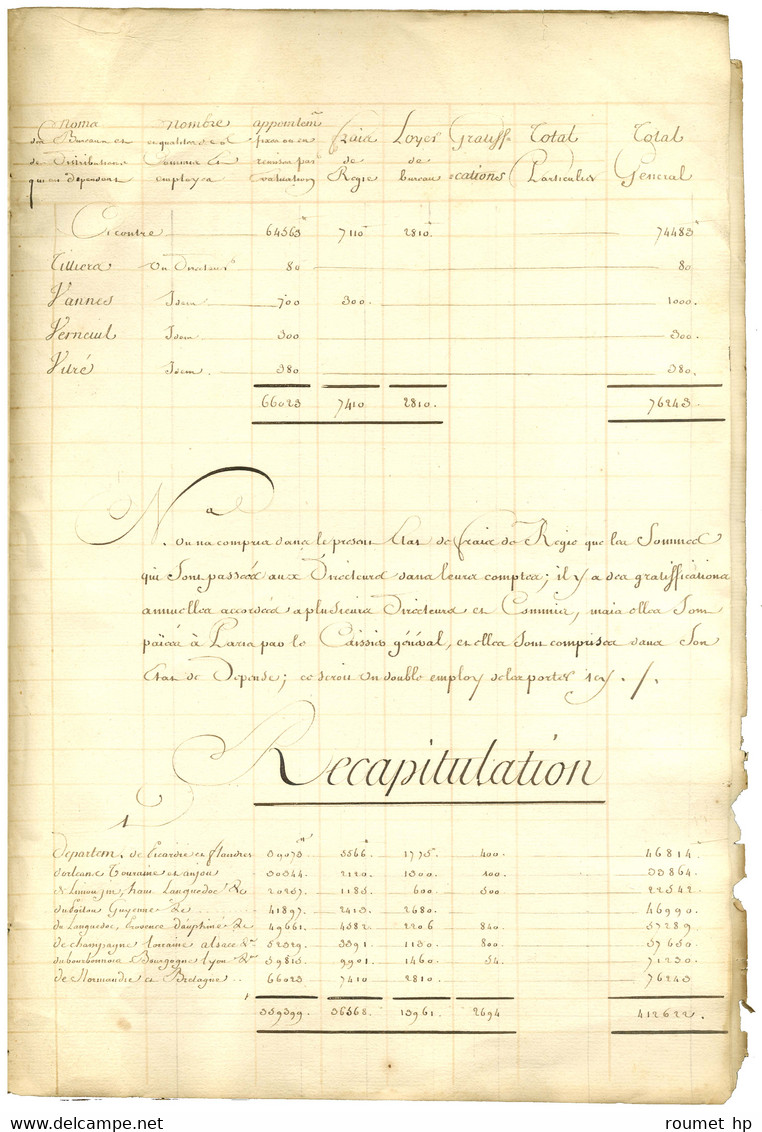 Noms nombre appointem.^ts fraix Loyers Gratiff Total Total
des Bureaux et et qualités des fixes ou en de de =cations Particulier General
de Distributions Commis et remises par Regie bureau
qui en dependent employés evaluation
Cicontre 64563^# 7110^# 2810^# 74483^#
Tilliers Un Directeur 80 80
Vannes Idem 700 300. 1000.
Verneuil Idem 300 300.
Vitré Idem. 380 380.
66023 7410 2810. 76243.
N.^a On na compris dans le present Etat de fraix de Regie que les Sommes
qui Sont passées aux Directeurs dans leurs comptes; il y a des gratiffications
annuelles accordées a plusieurs Directeurs et Commis, mais elles Sont
païées à Paris par le Caissier général, et elles Sont comprises dans Son
Etat de Depense; ce seroit un double employ de les porter icy ./.
Recapitulation
Departem. de Picardie et flandres 39073.^# 5566.^# 1775.^# 400. 46814^#
d'orleans Touraine et anjou 30344 2120. 1300. 100. 33864.
de Limousin, haut Languedoc &c 20257. 1185. 600. 500 22542.
du Poitou Guyenne &c 41897. 2413. 2680. 46990.
du Languedoc, Provence dauphiné &c 49661. 4582. 2206 840. 57289.
de champagne lorraine alsace &c. 52329. 3391. 1130. 800. 57650.
du bourbonnois Bourgogne lyon &c. 59815. 9901. 1460. 54. 71230.
de Normandie et Bretagne.. 66023 7410 2810. 76243
359399. 36568. 13961. 2694 412622.
roumet hp